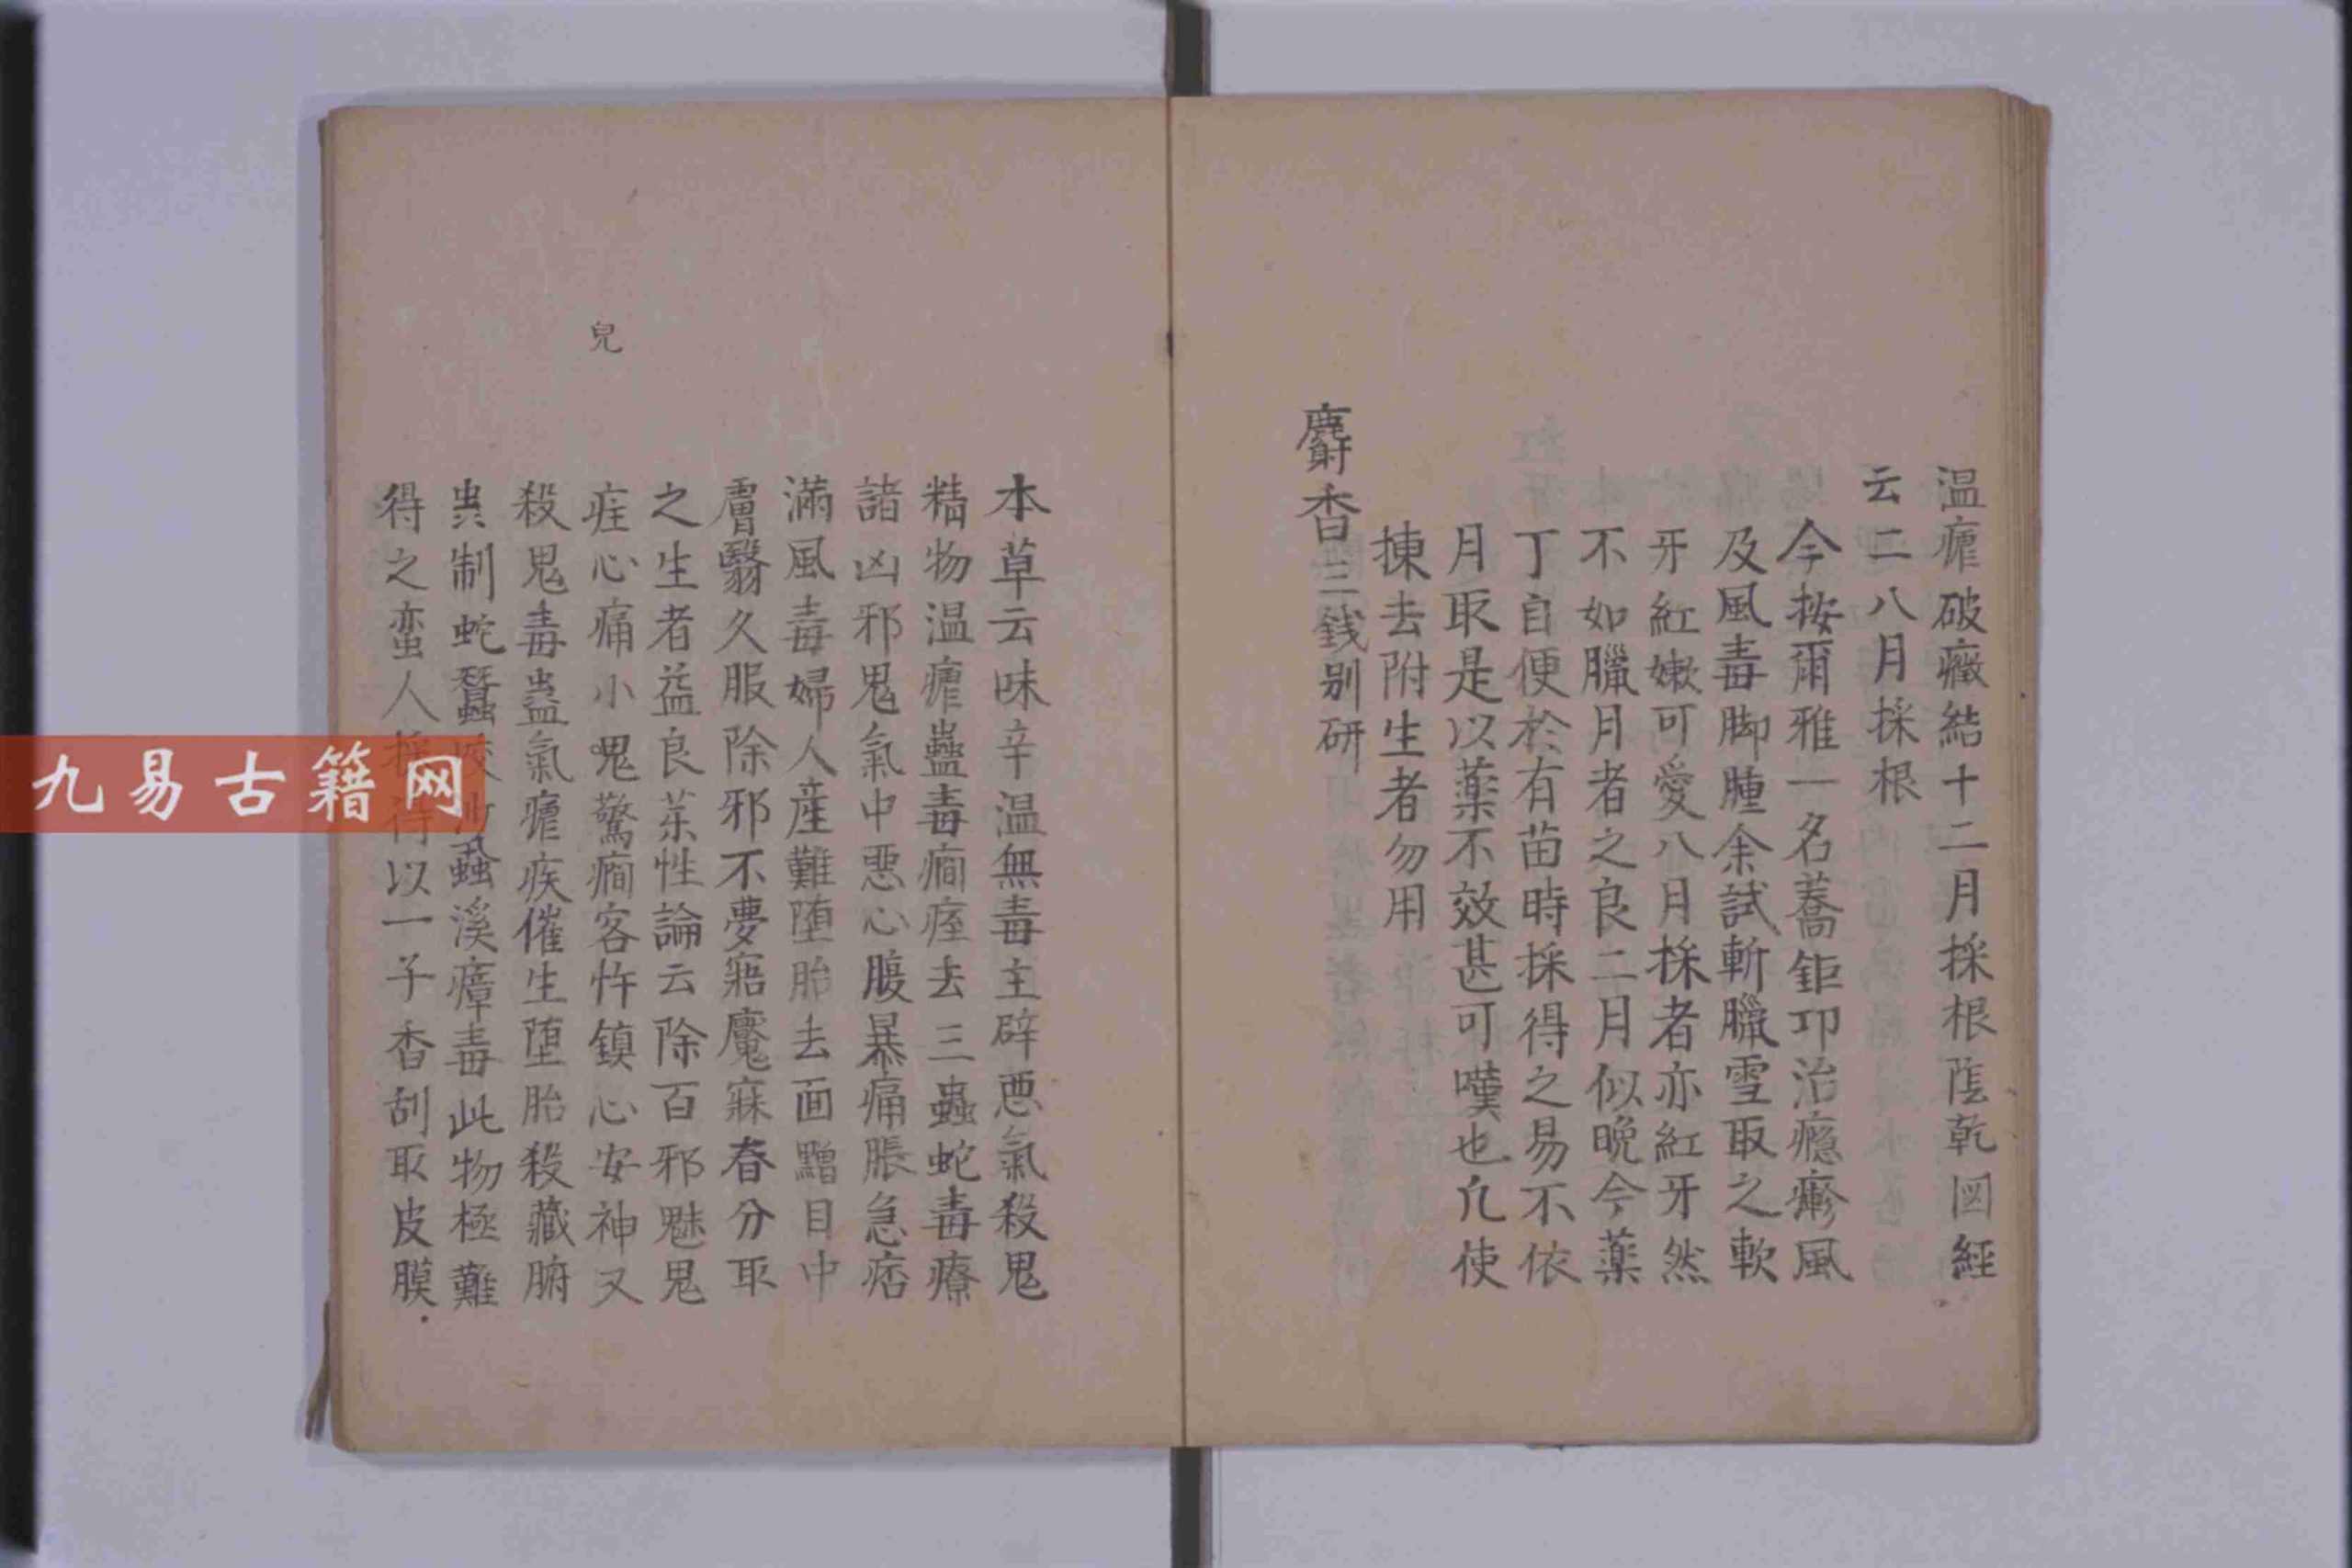 温瘧破癥結十二月採根蔭乾図經
云二八月採根
今按爾雅一名蕎鉅卭治癮瘮風
及風毒脚腫余試斬臘雪取之軟
牙紅嫰可愛八月採者亦紅牙然
不如臘月者之良二月似晩今薬
丁自便於有苗時採得之易不依
月取是以薬不效甚可嘆也凢使
揀去附生者勿用
麝香三銭别研
本草云味辛温無毒主辟悪氣殺鬼
精物温瘧蠱毒癎痓去三蟲蛇毒療
諸凶邪鬼氣中悪心腹暴痛脹急痞
滿風毒婦人産難堕胎去面䵴目中
膚翳久服除邪不夢寤魘寐春分取
之生者益良茱性論云除百邪魅鬼
疰心痛小鬼驚癎客忤鎮心安神又
兒
殺鬼毒蠱氣瘧疾催生堕胎殺藏腑
蟲制蛇蠶咬沙蝨溪瘴毒此物極難
得之蛮人採得以一子香刮取皮膜
九易古籍网